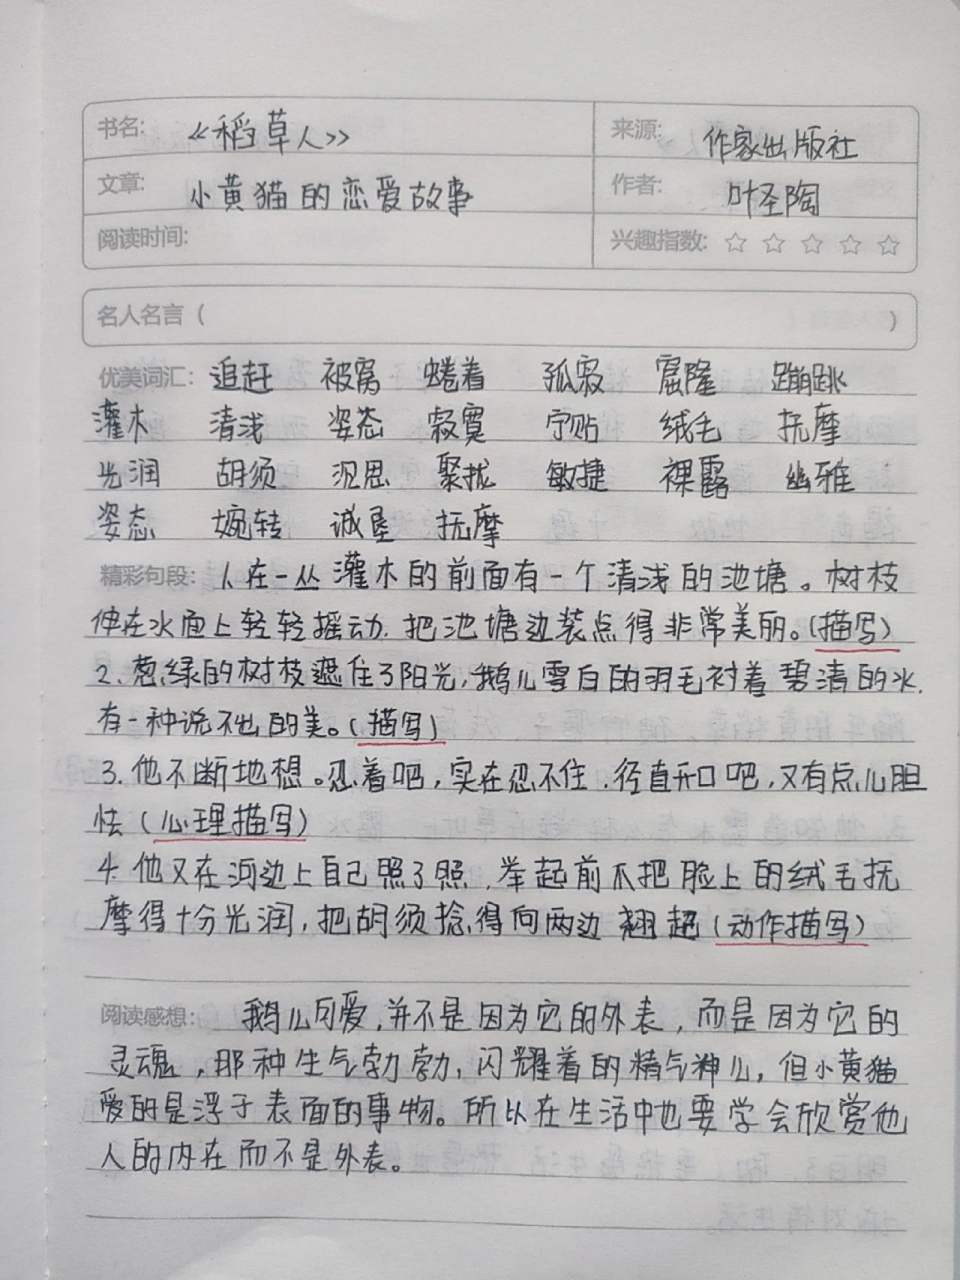 书名: 《稻草人》 来源: 作家出版社
文章: 小黄猫的恋爱故事 作者: 叶圣陶
阅读时间: 兴趣指数: ☆ ☆ ☆ ☆ ☆
名人名言 ( )
优美词汇: 追赶 被窝 蜷着 孤寂 窟隆 蹦跳
灌木 清浅 姿态 寂寞 宁贴 绒毛 抚摩
光润 胡须 沉思 聚拢 敏捷 裸露 幽雅
姿态 婉转 诚垦 抚摩
精彩句段: 1.在一丛灌木的前面有一个清浅的池塘。树枝
伸在水面上轻轻摇动.把池塘边装点得非常美丽。(描写)
2.葱绿的树枝遮住了阳光,鹅儿雪白的羽毛衬着碧清的水.
有一种说不出的美。(描写)
3.他不断地想。忍着吧,实在忍不住.径直开口吧,又有点儿胆
怯(心理描写)
4.他又在河边上自己照了照.举起前爪把脸上的绒毛抚
摩得十分光润,把胡须捻得向两边翘起(动作描写)
阅读感想: 鹅儿可爱,并不是因为它的外表,而是因为它的
灵魂,那种生气勃勃,闪耀着的精气神儿,但小黄猫
爱的是浮于表面的事物。所以在生活中也要学会欣赏他
人的内在而不是外表。